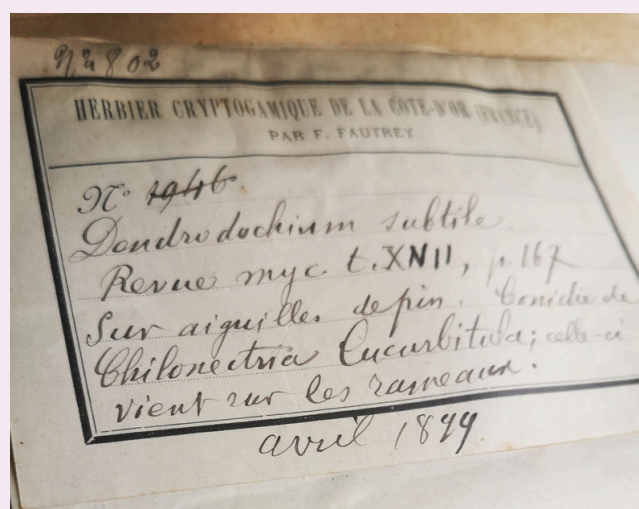 N° 802
HERBIER CRYPTOGAMIQUE DE LA COTE-D'OR (FRANCE)
PAR F. FAUTREY
N° 1946
Dendrodochium subtile
Revue myc t. XVII, p. 167
Sur aiguilles de pin. Conidie de
Chilonectria Cucurbitula; celle-ci
vient sur les rameaux.
avril 1899.